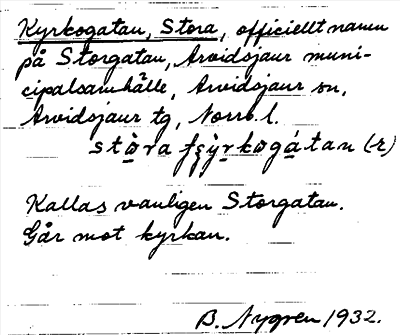 Kyrkogatan, Stora, officiellt namn
på Storgatan, Arvidsjaur muni-
cipalsamhälle, Arvidsjaur sn,
Arvidsjaur tg, Norrb. l.
Kallas vanligen Storgatan.
Går mot kyrkan.
B. Nygren 1932.